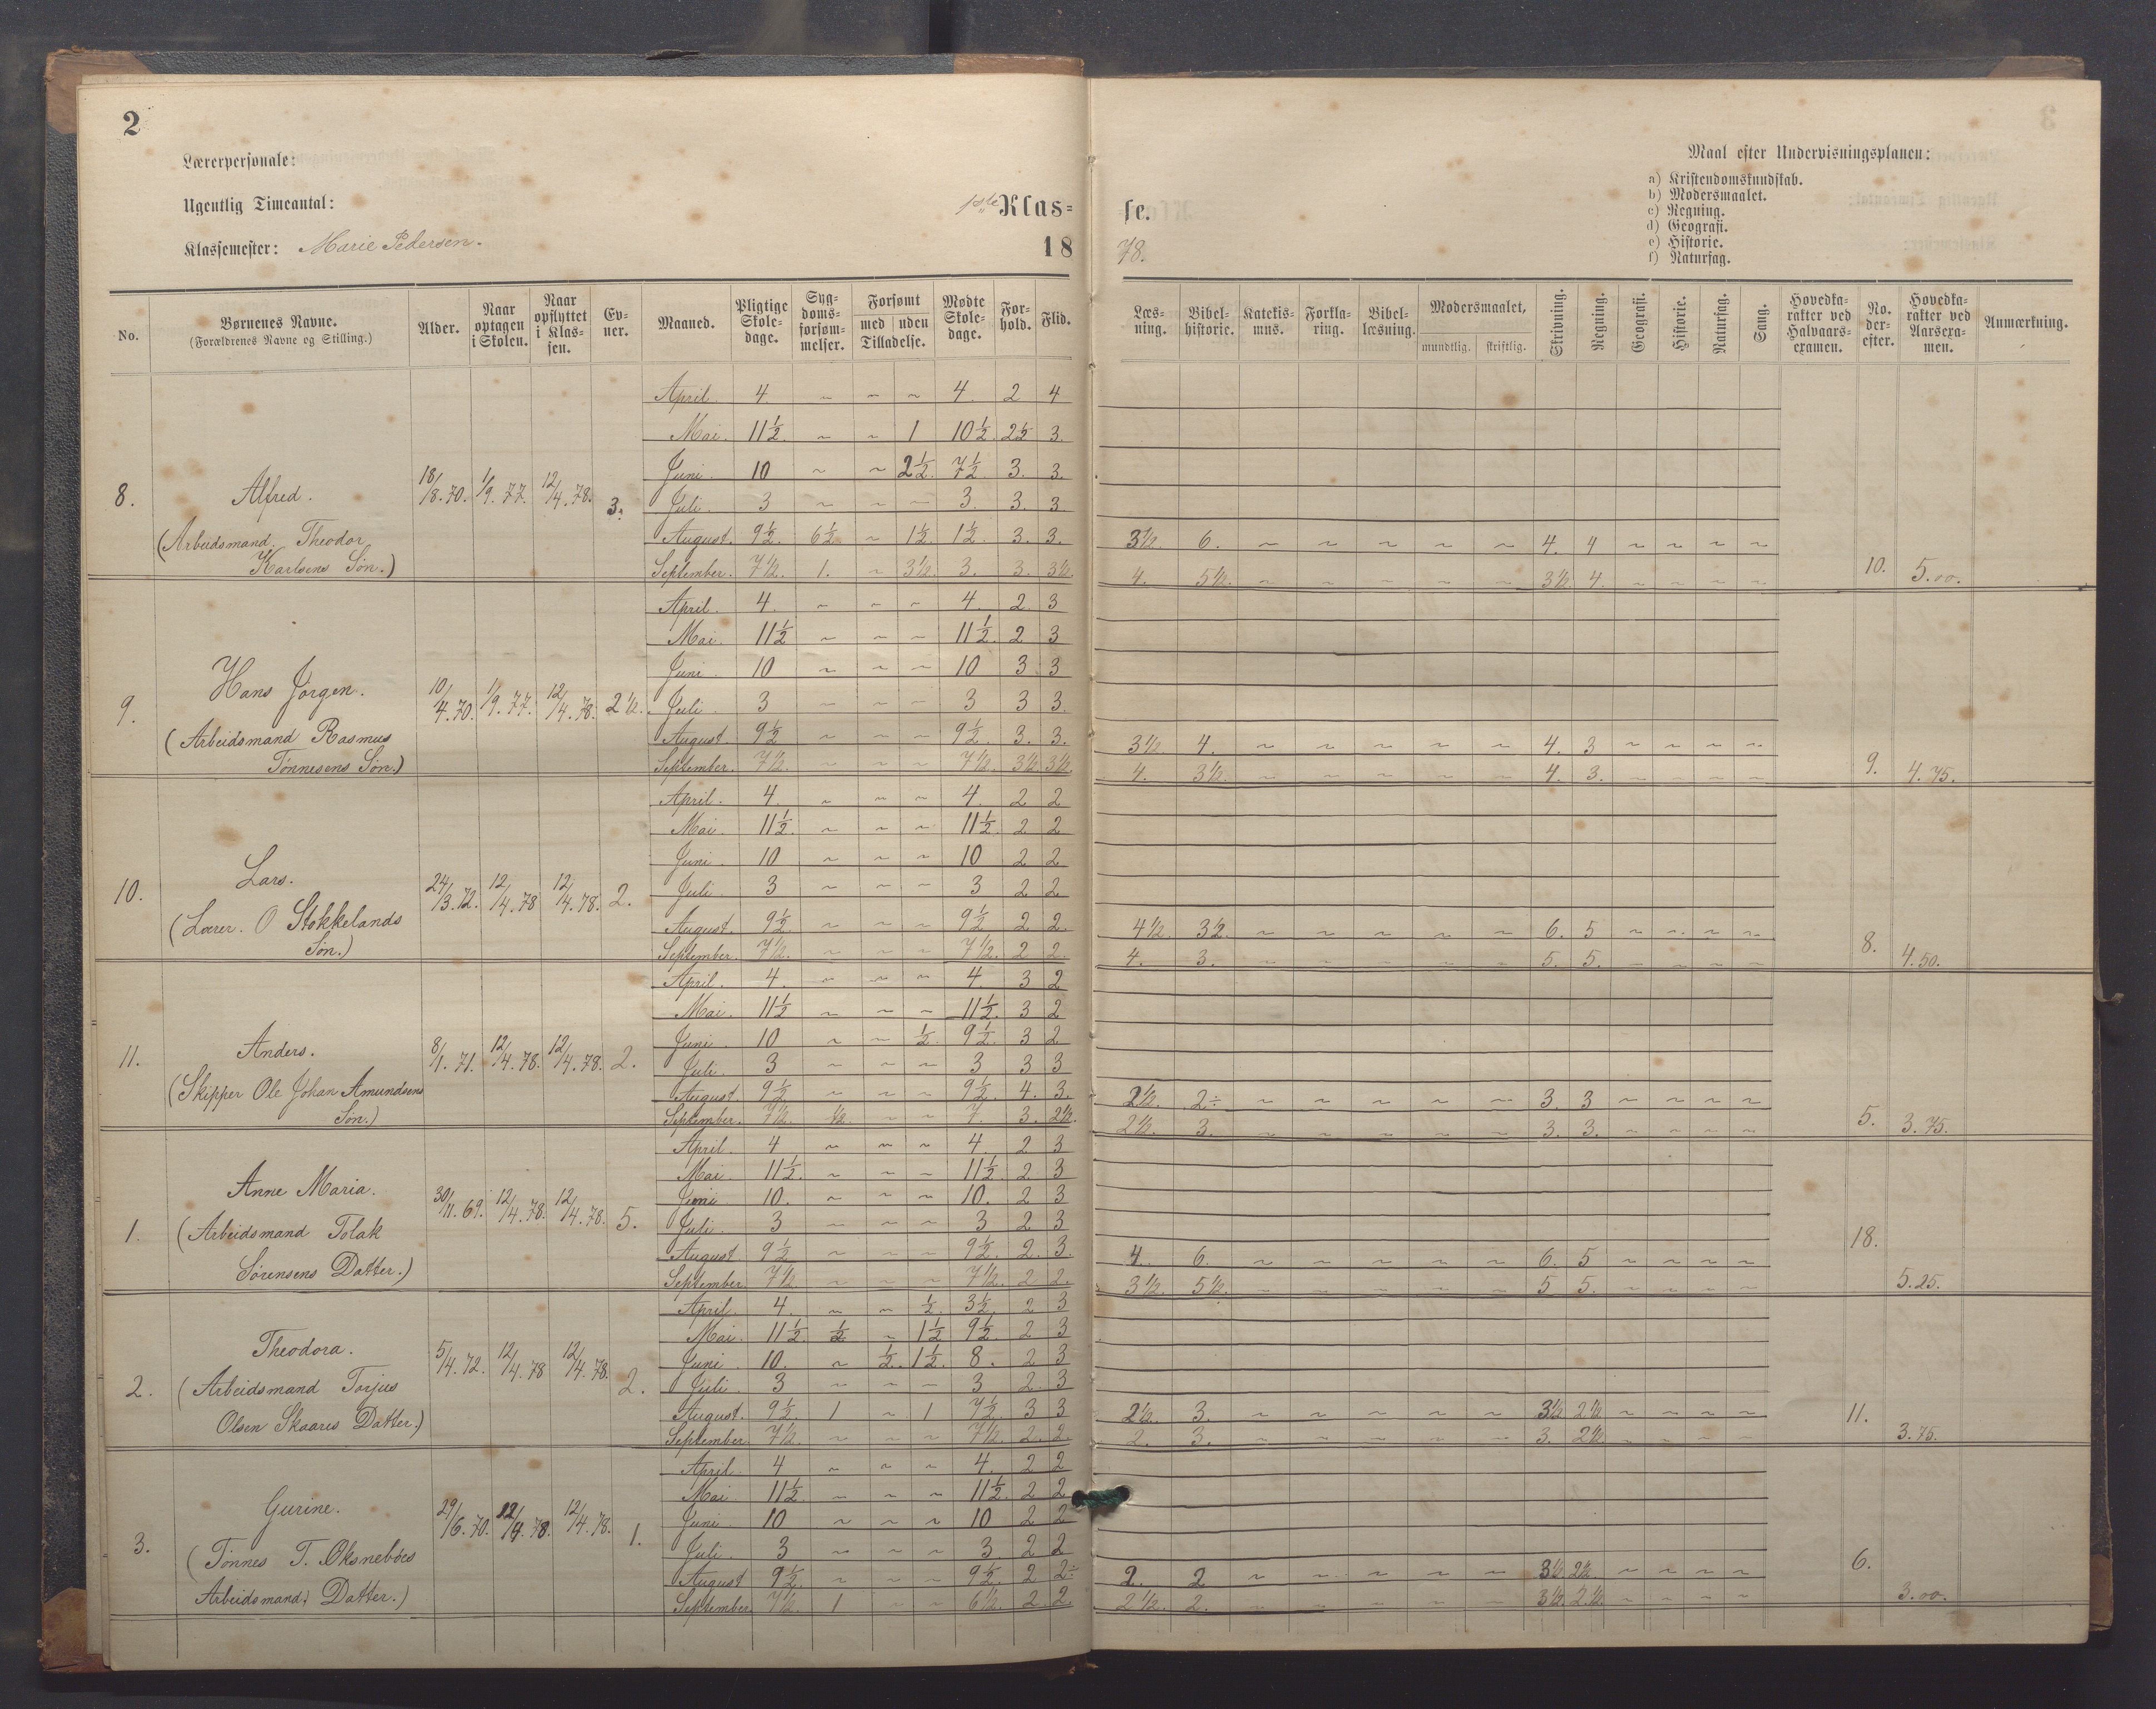 2
Lærerpersonale:
Ugentlig Timeantal:
Klassemester: Marie Pedersen.
1ste Klas=
18
se.
78.
Maal efter Undervisningsplanen:
a) Kristendomskundskab.
b) Modersmaalet.
c) Regning.
d) Geografi.
e) Historie.
f) Naturfag.
No. | Børnenes Navne. (Forældrenes Navne og Stilling.) | Alder. | Naar optagen i Skolen. | Naar opflyttet i Klas=sen. | Ev=ner. | Maaned. | Pligtige Skole=dage. | Syg=doms=forsøm=melser. | Forsømt med | uden Tilladelse. | Mødte Skole=dage. | For=hold. | Flid. | Læs=ning. | Bibel=historie. | Katekis=mus. | Forkla=ring. | Bibel=læsning. | Modersmaalet, mundtlig. | skriftlig. | Skrivning. | Regning. | Geografi. | Historie. | Naturfag. | Sang. | Hovedka=rakter ved Halvaars=examen. | No. der=efter. | Hovedka=rakter ved Aarsexa=men. | Anmærkning.
8. Alfred. (Arbeidsmand. Theodor Karlsens Søn.) 18/8.70. 1/9.77. 12/4.78. 3.
April. 4. ~ ~ ~ 4. 2 4
Mai. 11½. ~ ~ 1 10½. 2½ 3.
Juni. 10 ~ ~ 2½. 7½. 3. 3.
Juli. 3 ~ ~ ~ 3. 3. 3
August. 9½. 6½ ~ 1½. 1½. 3. 3. 3½. 6. ~ ~ ~ ~ ~ 4. 4 ~ ~ ~ ~
September. 7½. 1. ~ 3½. 3. 3. 3½. 4. 5½. ~ ~ ~ ~ ~ 3½. 4. ~ ~ ~ ~ 10. 5.00.
9. Hans Jørgen. (Arbeidsmand Rasmus Tønnesens Søn.) 10/4.70. 1/9.77. 12/4.78. 2½.
April. 4. ~ ~ ~ 4. 2. 3
Mai. 11½ ~ ~ ~ 11½. 2 3
Juni. 10 ~ ~ ~ 10 3 3
Juli. 3 ~ ~ ~ 3 3 3.
August. 9½ ~ ~ ~ 9½. 3. 3. 3½. 4. ~ ~ ~ ~ ~ 4. 3 ~ ~ ~ ~
September. 7½. ~ ~ ~ 7½. 3½. 3½. 4. 3½. ~ ~ ~ ~ ~ 4. 3. ~ ~ ~ ~ 9. 4.75.
10. Lars. (Lærer. O Stokkelands Søn.) 24/3.72. 12/4.78 12/4.78. 2.
April. 4. ~ ~ ~ 4. 2 2
Mai. 11½. ~ ~ ~ 11½. 2 2
Juni. 10 ~ ~ ~ 10 2 2
Juli. 3 ~ ~ ~ 3 2 2
August. 9½. ~ ~ ~ 9½ 2 2. 4½. 3½. ~ ~ ~ ~ ~ 6. 5 ~ ~ ~ ~
September. 7½. ~ ~ ~ 7½. 2 2. 4. 3. ~ ~ ~ ~ ~ 5. 5. ~ ~ ~ ~ 8. 4.50.
11. Anders. (Skipper Ole Johan Amundsens Søn.) 8/1.71. 12/4.78. 12/4.78. 2.
April. 4. ~ ~ ~ 4. 3 2
Mai. 11½ ~ ~ ~ 11½. 3 2
Juni. 10 ~ ~ ½. 9½. 3 2
Juli. 3 ~ ~ ~ 3 3 3
August. 9½. ~ ~ ~ 9½. 4. 3. 2½. 2÷ ~ ~ ~ ~ ~ 3. 3 ~ ~ ~ ~
September. 7½. ½. ~ ~ 7. 3. 2½. 2½. 3. ~ ~ ~ ~ ~ 3. 3. ~ ~ ~ ~ 5. 3.75.
1. Anne Maria. (Arbeidsmand Tolak Sørensens Datter.) 30/11.69. 12/4.78. 12/4.78. 5.
April. 4 ~ ~ ~ 4. 2 3
Mai. 11½. ~ ~ ~ 11½. 2 3
Juni 10. ~ ~ ~ 10. 2 3
Juli. 3 ~ ~ ~ 3 2 3
August. 9½ ~ ~ ~ 9½. 2. 3. 4. 6. ~ ~ ~ ~ ~ 6. 5 ~ ~ ~ ~
September. 7½. ~ ~ ~ 7½. 2 2. 3½. 5½. ~ ~ ~ ~ ~ 5 5. ~ ~ ~ ~ 18. 5.25.
2. Theodora. (Arbeidsmand Torjus Olsen Skaares Datter.) 5/4.72. 12/4.78 12/4.78. 2.
April. 4. ~ ~ ½. 3½. 2 3
Mai. 11½. ½ ~ 1½ 9½. 2 3
Juni 10. ~ ½. 1½. 8. 2 3
Juli 3 ~ ~ ~ 3 2. 3
August. 9½. 1 ~ 1 7½. 3 3 2½. 3. ~ ~ ~ ~ ~ 3½ 2½ ~ ~ ~ ~
September 7½. ~ ~ ~ 7½. 2. 2. 2. 3. ~ ~ ~ ~ ~ 3. 2½. ~ ~ ~ ~ 11. 3.75.
3. Gurine. (Tønnes T. Øksnebøes Arbeidsmand; Datter.) 29/6.70. 12/4.78. 12/4.78. 1.
April. 4 ~ ~ ~ 4. 2 2
Mai. 11½ ~ ~ ~ 11½. 2 2
Juni 10 ~ ~ ~ 10 2 2
Juli. 3 ~ ~ ~ 3 2 2
August 9½. ~ ~ ~ 9½ 2 2÷ 2. 2 ~ ~ ~ ~ ~ 3½ 2½. ~ ~ ~ ~
September. 7½. 1 ~ ~ 6½. 2. 2. 2½. 2. ~ ~ ~ ~ ~ 3½. 2½. ~ ~ ~ ~ 6. 3.00.